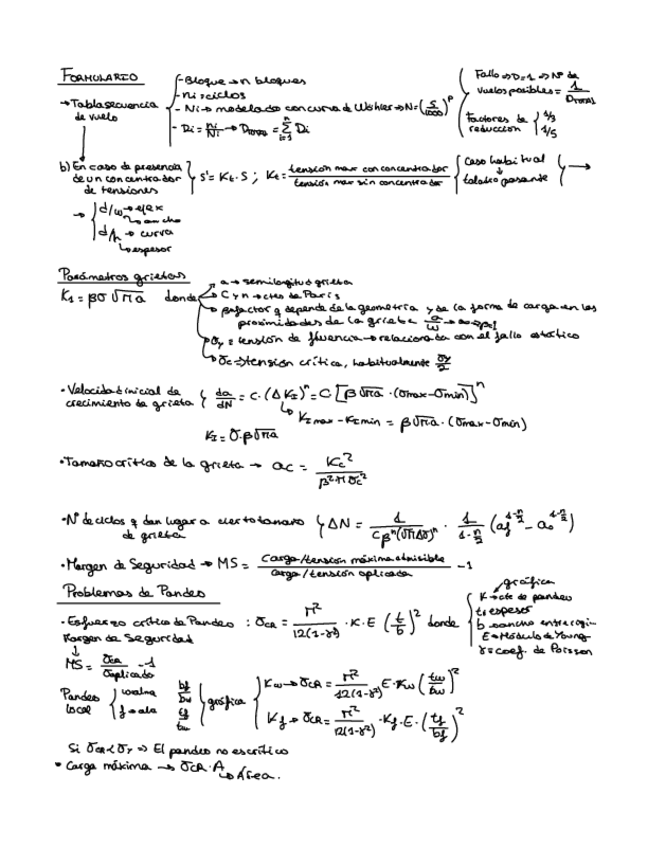 FORMULARIO
→ Tabla secuencia de vuelo
- Bloque → n bloques
- ni → ciclos
- Ni → modelado con curva de Wöhler → N = (S/1000)^p
- Di = ni/Ni → D_TOTAL = Σ(i=1, n) Di
Fallo → D=1 → Nº de vuelos posibles = 1/D_TOTAL
factores de reducción { 1/3
1/5
b) En caso de presencia de un concentrador de tensiones } S' = Kt · S ; Kt = tensión max con concentrador / tensión max sin concentrador
{ caso habitual
↓
taladro pasante } →
→ { d/w → eje x
↳ ancho
d/h → curva
↳ espesor
Parámetros grietas
K1 = βσ√πa donde
a → semilongitud grieta
C y n → ctes de Paris
β factor q depende de la geometría y de la forma de carga en las
proximidades de la grieta a/w
σy = tensión de fluencia → relacionada con el fallo estático
σc → tensión crítica, habitualmente σy/2
• Velocidad inicial de crecimiento de grieta { da/dN = C·(ΔK_I)^n = C[β√πa · (σmax - σmin)]^n
↳ K_I max - K_I min = β√πa · (σmax - σmin)
K_I = σ·β√πa
• Tamaño crítico de la grieta → ac = Kc²/β²πσc²
• Nº de ciclos q dan lugar a cierto tamaño de grieta { ΔN = 1/Cβ^n(√πΔσ)^n · 1/(1-n/2) (af^(1-n/2) - ao^(1-n/2))
• Margen de Seguridad → MS = Carga/tensión máxima admisible / Carga/tensión aplicada - 1
Problemas de Pandeo
• Esfuerzo crítico de Pandeo : σCR = π²/12(1-γ²) · K·E (t/b)² donde
gráfica
K → cte de pandeo
t → espesor
E → Módulo de Young
γ = coef. de Poisson
Margen de Seguridad
↓
MS = σCR/σaplicado - 1
Pandeo local { w → alma
f → ala
bf/bw
tf/tw
} gráfica { Kw → σCR = π²/12(1-γ²) E·Kw (tw/bw)²
Kf → σCR = π²/12(1-γ²) · Kf·E·(tf/bf)²
Si σCR < σy ⇒ El pandeo no es crítico
• Carga máxima → σCR · A
↳ Área.